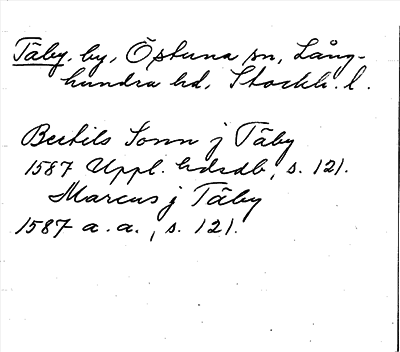 Täby, by, Östuna sn, Lång-
hundra hd, Stockh. l.
Bertils Sonn j Täby
1587 Uppl. hdsdb, s. 121.
Marcus j Täby
1587 a. a., s. 121.